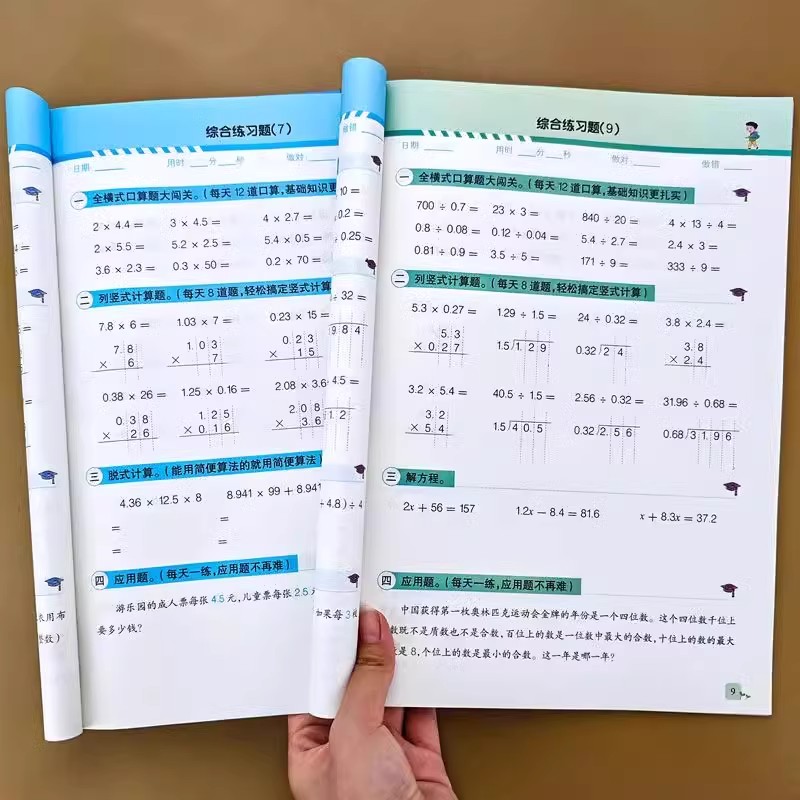 综合练习题(7)
日期 用时 分 秒 做对
一 全横式口算题大闯关。(每天 12 道口算,基础知识更
2 × 4.4 = 3 × 4.5 = 4 × 2.7 =
2 × 5.5 = 5.2 × 2.5 = 5.4 × 0.5 =
3.6 × 2.3 = 0.3 × 50 = 0.2 × 70 =
二 列竖式计算题。(每天 8 道题,轻松搞定竖式计算
7.8 × 6 = 1.03 × 7 = 0.23 × 15 =
7.8 1.03 0.23
× 6 × 7 × 15
0.38 × 26 = 1.25 × 0.16 = 2.08 × 3.6
0.38 1.25 2.08
× 26 × 0.16 × 3.6
三 脱式计算。(能用简便算法的就用简便算法)
4.36 × 12.5 × 8 8.941 × 99 + 8.941
= =
= =
四 应用题。(每天一练,应用题不再难)
游乐园的成人票每张 4.5 元,儿童票每张 2.5
要多少钱?
做错
10 =
0.2 =
÷ 0.25 =
÷ 32 =
984
4.5 =
1.2
+4.8) ÷ 4
如果每 3
综合练习题(9)
日期 用时 分 秒 做对 做错
一 全横式口算题大闯关。(每天 12 道口算,基础知识更扎实)
700 ÷ 0.7 = 23 × 3 = 840 ÷ 20 = 4 × 13 ÷ 4 =
0.8 ÷ 0.08 = 0.12 ÷ 0.04 = 5.4 ÷ 2.7 = 2.4 × 3 =
0.81 ÷ 0.9 = 3.5 ÷ 5 = 171 ÷ 9 = 333 ÷ 9 =
二 列竖式计算题。(每天 8 道题,轻松搞定竖式计算)
5.3 × 0.27 = 1.29 ÷ 1.5 = 24 ÷ 0.32 = 3.8 × 2.4 =
5.3 1.5 1.29 0.32 24 3.8
× 0.27 × 2.4
3.2 × 5.4 = 40.5 ÷ 1.5 = 2.56 ÷ 0.32 = 31.96 ÷ 0.68 =
3.2 1.5 40.5 0.32 2.56 0.68 31.96
× 5.4
三 解方程。
2x + 56 = 157 1.2x − 8.4 = 81.6 x + 8.3x = 37.2
四 应用题。(每天一练,应用题不再难)
中国获得第一枚奥林匹克运动会金牌的年份是一个四位数。这个四位数千位上
数既不是质数也不是合数,百位上的数是一位数中最大的合数,十位上的数的最大
是 8,个位上的数是最小的合数。这一年是哪一年?
9